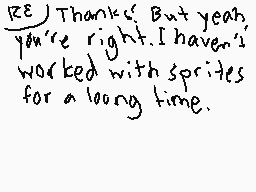 RE) Thanks! But yeah,
you're right. I haven't
worked with sprites
for a loong time.